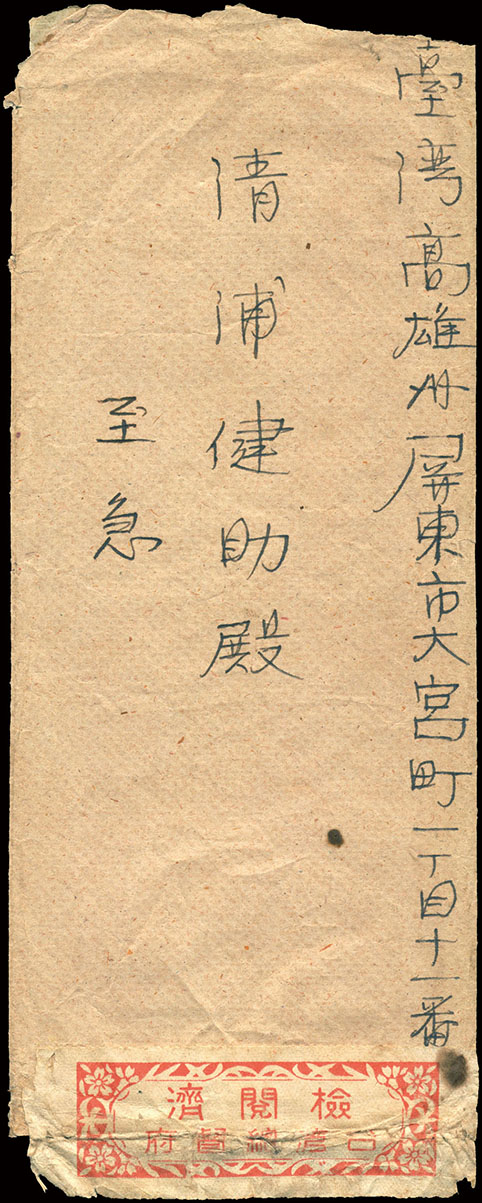 臺湾高雄州屏東市大宮町一丁目十一番
清浦健助殿
至急
檢閱濟
台湾總督府